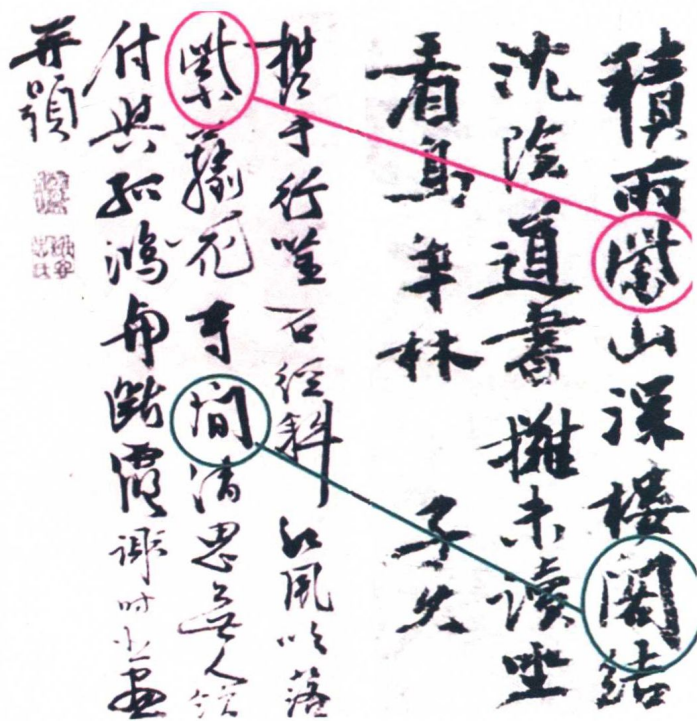 積雨紫山深樓閣結
沈陰道書攤未讀坐
看鳥爭林 子久
行 石徑斜 風吹落
紫藤花 間清思無人領
付與孤鴻 斷霞 謝時臣畫
并題